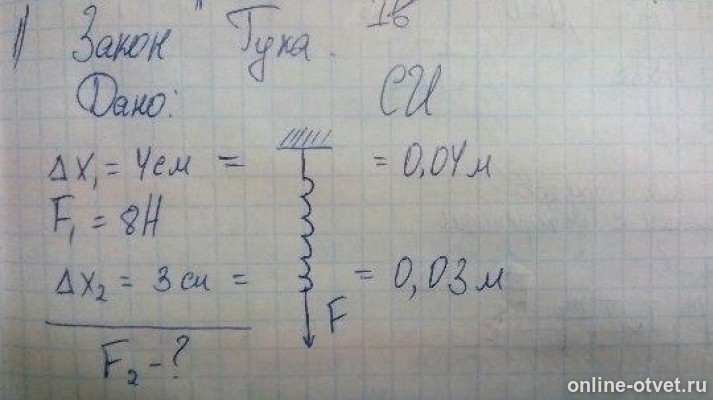 1) Закон "Гука. Iв
Дано: СИ
Δx₁ = 4см = = 0,04м
F₁ = 8Н
Δx₂ = 3см = = 0,03м
F
F₂ - ?
online-otvet.ru